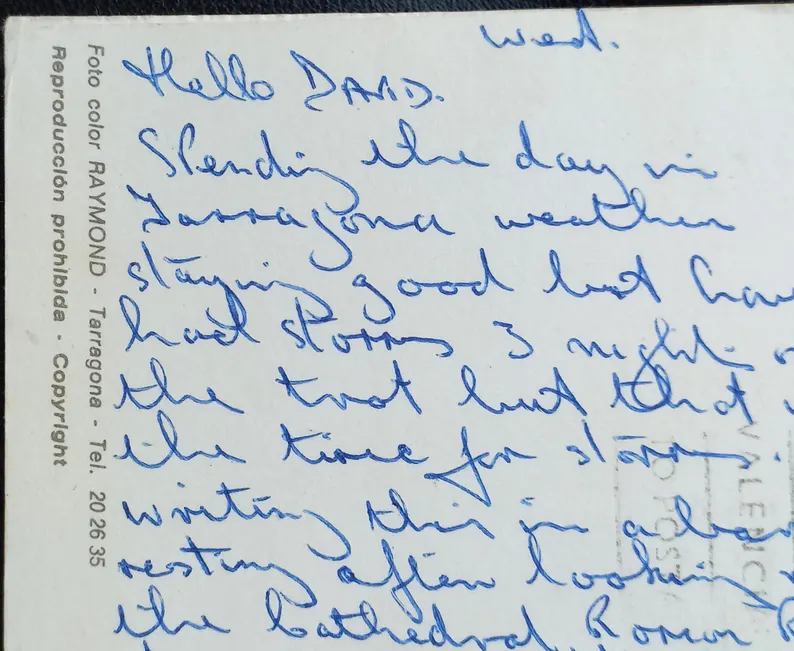 Wed.
Hello DAVID.
Spending the day in
Tarragona weather
staying good but have
had storms 3 nights
the trot but that
the time for storms.
writing this in a bar
resting after looking
the Cathedral, Roman
Foto color RAYMOND - Tarragona - Tel. 20 26 35
Reproducción prohibida - Copyright
VALENCIA